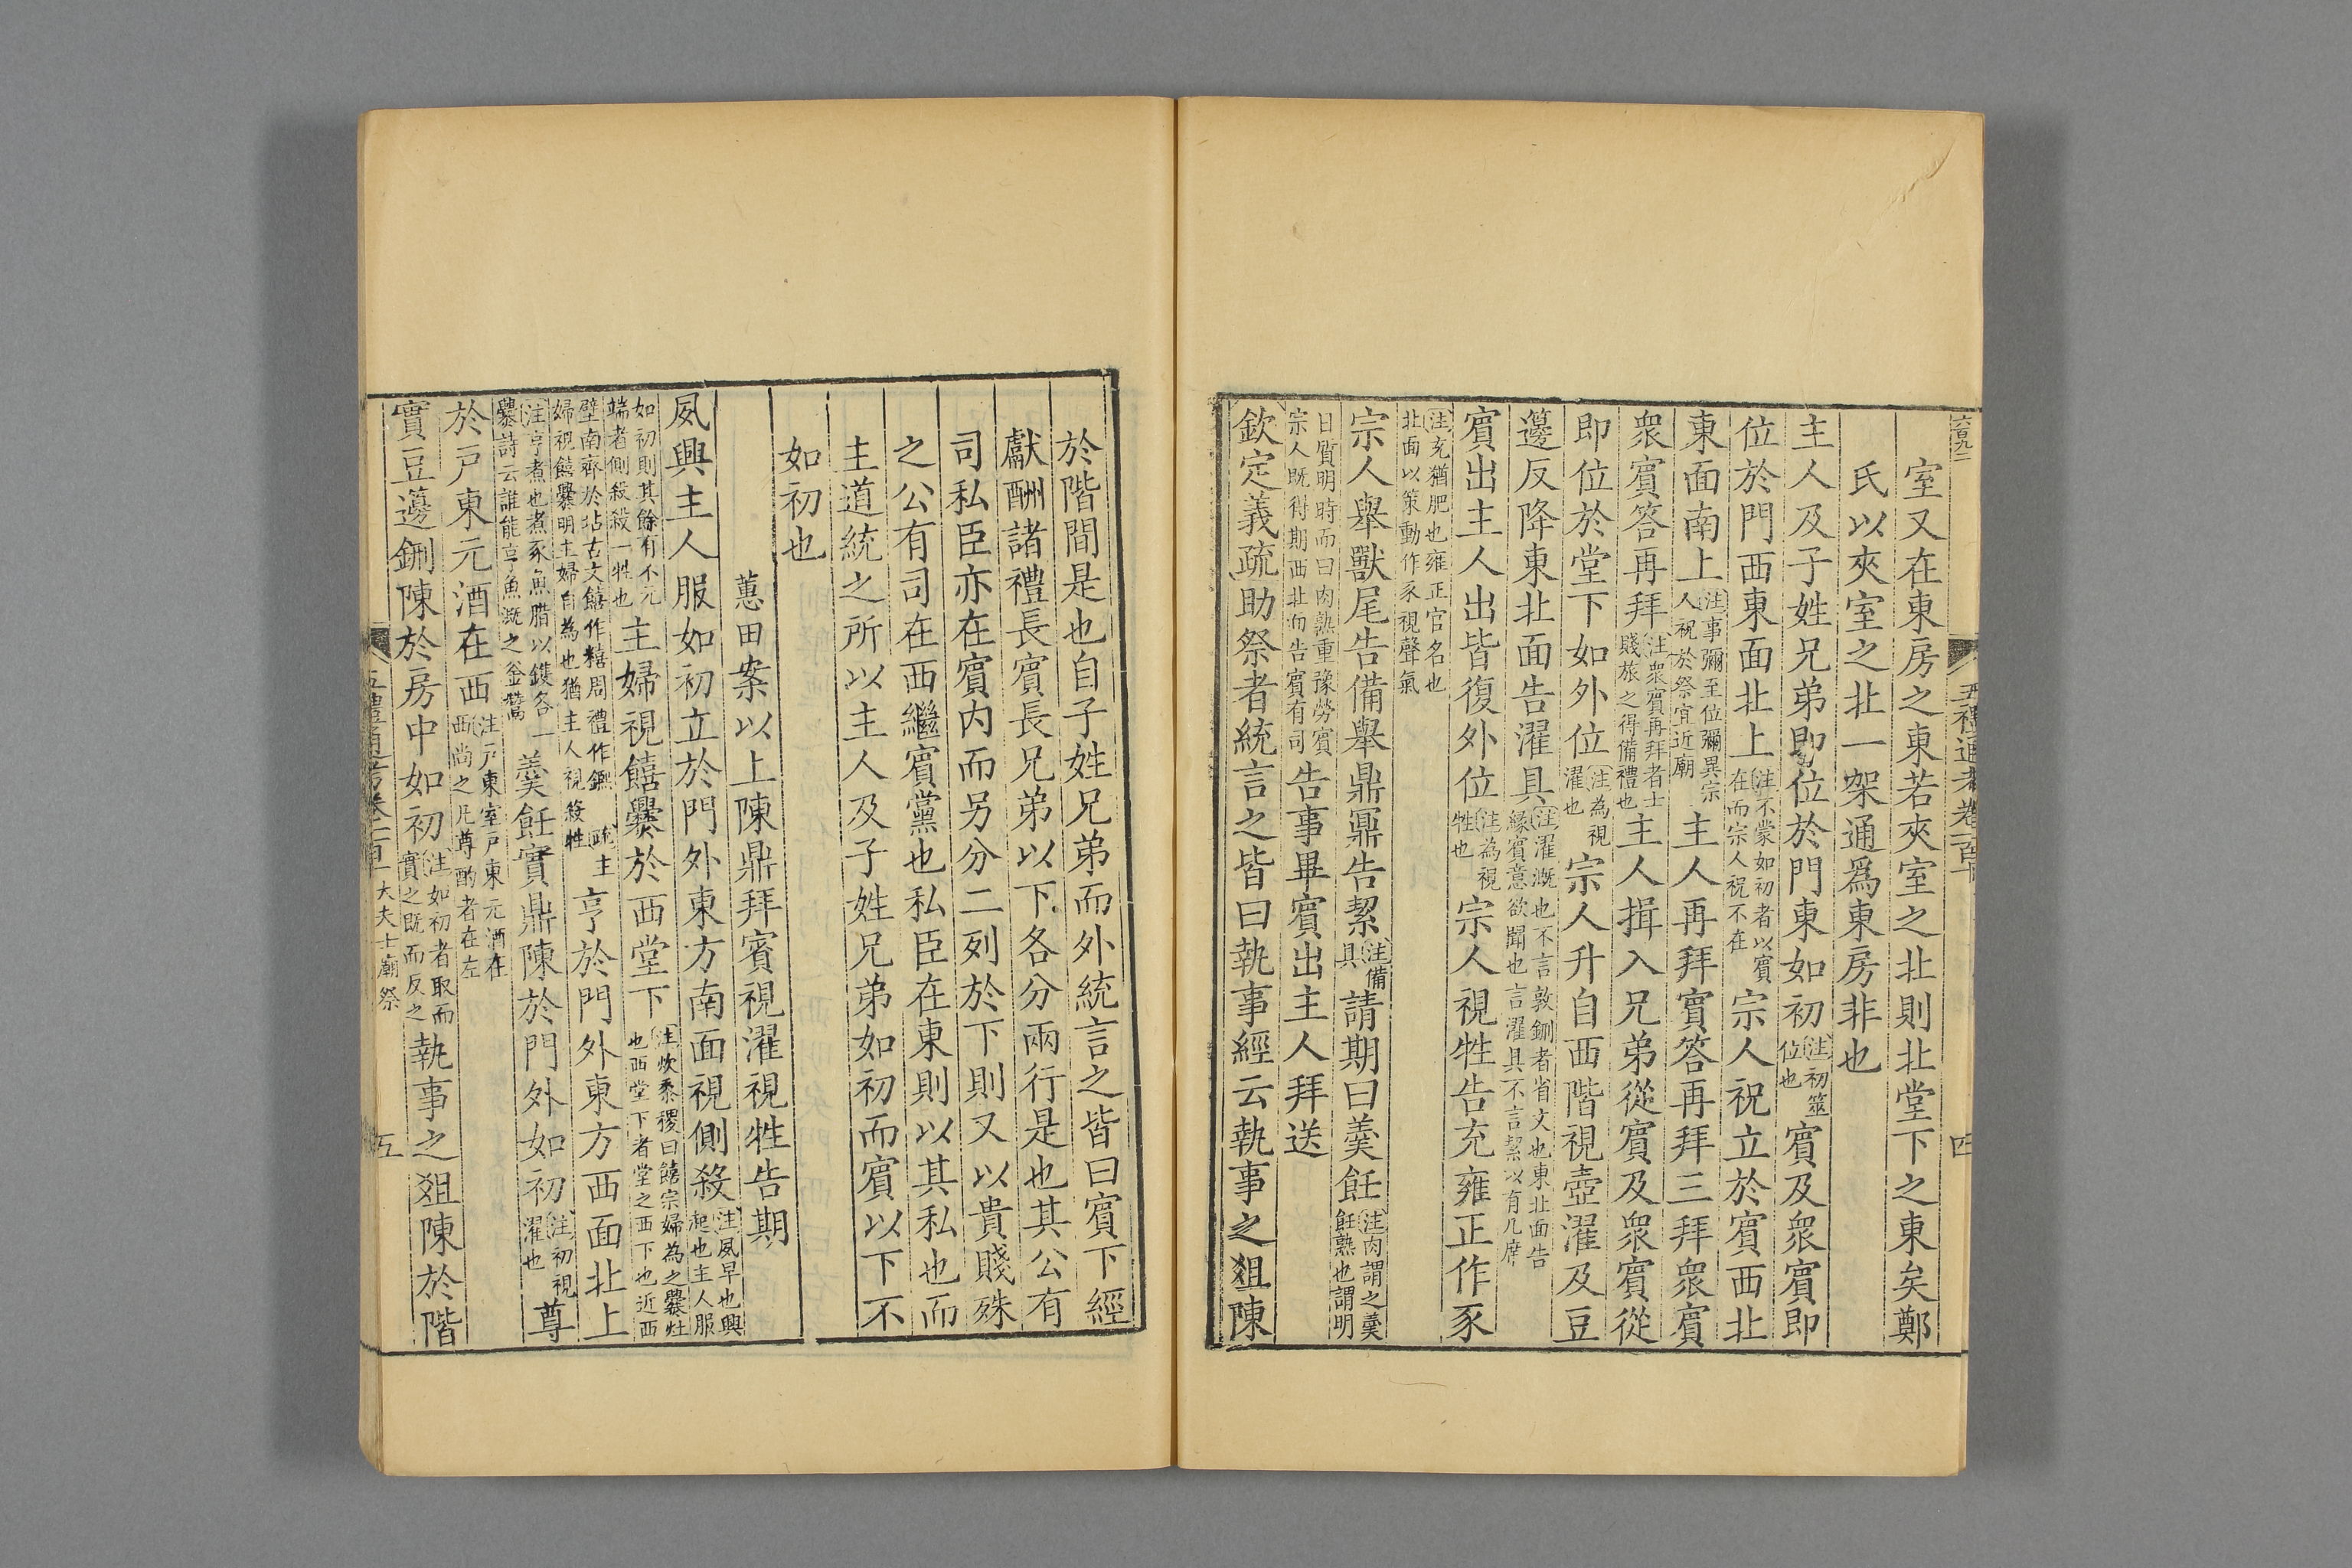 六百九二
五禮通考卷一百十
四
室又在東房之東若夾室之北則北堂下之東矣鄭
氏以夾室之北一架通爲東房非也
主人及子姓兄弟即位於門東如初注初筮位也賓及衆賓即
位於門西東面北上注不蒙如初者以賓在而宗人祝不在宗人祝立於賓西北
東面南上注事彌至位彌異宗人祝於祭宜近廟主人再拜賓答再拜三拜衆賓
衆賓答再拜注衆賓再拜者士賤旅之得備禮也主人揖入兄弟從賓及衆賓從
即位於堂下如外位注為視濯也宗人升自西階視壺濯及豆
籩反降東北面告濯具注濯溉也不言敦鉶者省文也東北面告緣賓意欲聞也言濯具不言絜以有几席
賓出主人出皆復外位注為視牲也宗人視牲告充雍正作豕
注充猶肥也雍正官名也北面以策動作豕視聲氣
宗人舉獸尾告備舉鼎鼏告絜注備具請期曰羹飪注肉謂之羹飪熟也謂明
日質明時而曰肉熟重豫勞賓宗人既得期西北面告賓有司告事畢賓出主人拜送
欽定義疏助祭者統言之皆曰執事經云執事之俎陳
於階間是也自子姓兄弟而外統言之皆曰賓下經
獻酬諸禮長賓長兄弟以下各分兩行是也其公有
司私臣亦在賓内而另分二列於下則又以貴賤殊
之公有司在西繼賓黨也私臣在東則以其私也而
主道統之所以主人及子姓兄弟如初而賓以下不
如初也
蕙田案以上陳鼎拜賓視濯視牲告期
夙興主人服如初立於門外東方南面視側殺注夙早也興起也主人服
如初則其餘有不元端者側殺殺一牲也主婦視饎爨於西堂下注炊黍稷曰饎宗婦為之爨灶也西堂下者堂之西下也近西
壁南齊於坫古文饎作糦周禮作䭈 疏主婦視饎爨明主婦自為也猶主人視殺牲亨於門外東方西面北上
注亨煮也煮豕魚腊以鑊各一爨詩云誰能亨魚溉之釜鬵羹飪實鼎陳於門外如初注初視濯也尊
於戸東元酒在西注戸東室戸東元酒在西尚之凡尊酌者在左
實豆籩鉶陳於房中如初注如初者取而實之既而反之執事之俎陳於階
五禮通考卷一百十一大夫士廟祭
五